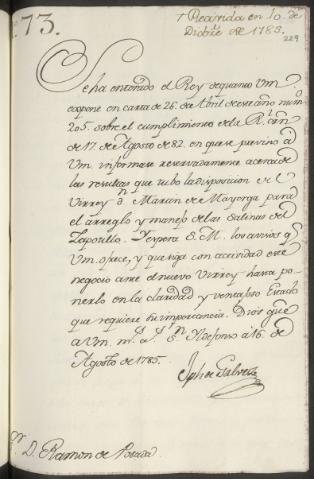 73.
+ Recivida en 10 de
Dizbre. de 1785.
229
Se ha enterado el Rey de quanto Vm.
expone en carta de 26. de Abril de este año num.
205. sobre el cumplimiento de la Rl. orn.
de 17. de Agosto de 82. en que se previno à
Vm. informase reservadamente acerca de
las resultas que tubo la disposicion del
Virrey Dn. Martin de Mayorga para
el arreglo y manejo de las Salinas del
Zapotillo. Y espera S. M. los avisos q.e
Vm. ofrece, y que siga con actividad este
negocio ante el nuevo Virrey hasta po-
nerlo en la claridad y ventajoso Estado
que requiere su importancia. Dios gue.
a Vm. m.s a.s Sn. Ildefonso à 16. de
Agosto de 1785.
Jph de Galvez
Sr. D. Ramon de Posada.